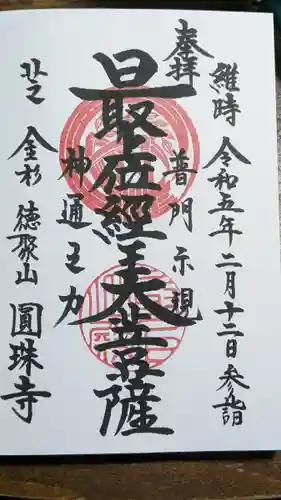 維時 令和五年二月十二日参詣
奉拝
普門示現
最上位經王大菩薩
神通之力
芝 金杉 徳聚山 圓珠寺